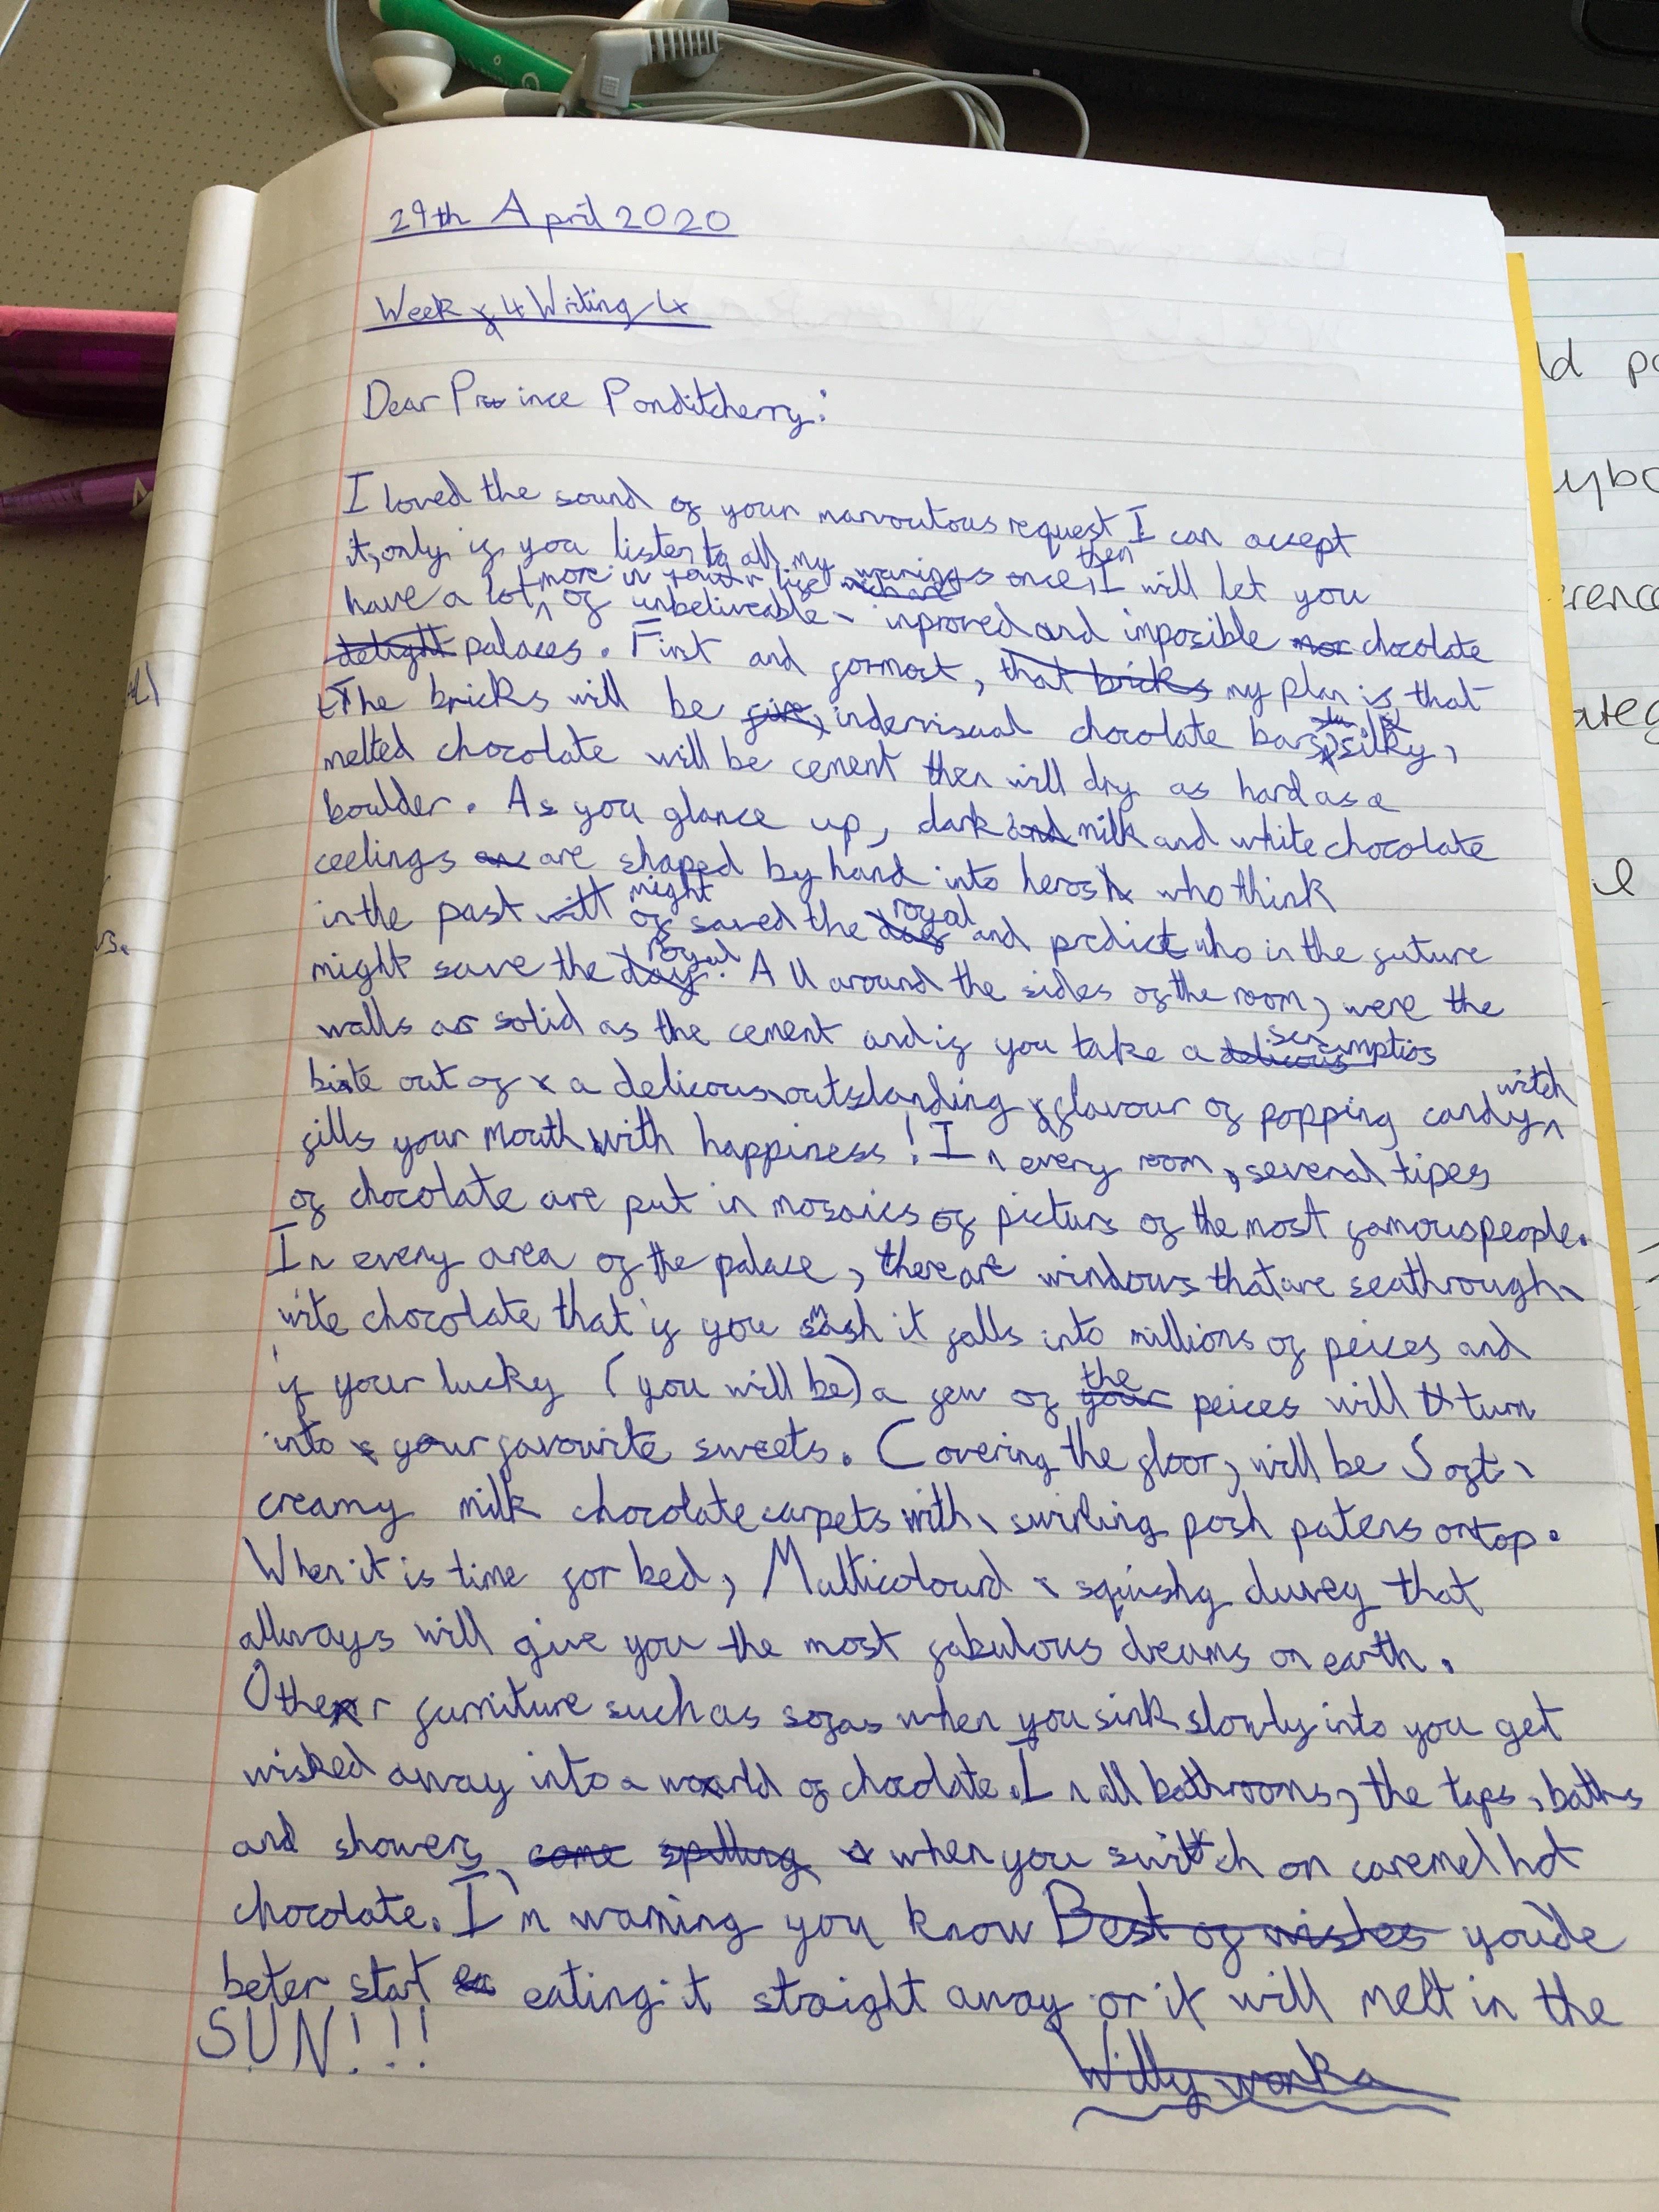 29th April 2020
Week 4 Writing 4
Dear Prince Ponditcherry:
I loved the sound of your marvoutous request I can accept
it, only if you listen to all my warnings once, then I will let you
have a lot more in your life of unbeliveable, inproved and imposible chocolate
delight palaces. First and formost, that bricks my plan is that
The bricks will be indervisual chocolate bars, silky,
melted chocolate will be cement then will dry as hard as a
boulder. As you glance up, dark and milk and white chocolate
ceelings are shaped by hand into heros who think
in the past will might of saved the day royal and prdict who in the future
might save the day royal. All around the sides of the room, were the
walls as solid as the cement and if you take a delicous scrumptios
bite out of a delicous, outstanding flavour of popping candy, witch
fills your mouth with happiness! In every room, several tipes
of chocolate are put in mosaics of picturs of the most famous people.
In every area of the palace, there are windows that are seathrough,
wite chocolate that if you smash it falls into millions of peices and
if your lucky (you will be) a few of your the peices will turn
into your favourite sweets. Covering the floor, will be Soft,
creamy milk chocolate carpets with, swirling posh patens on top.
When it is time for bed, Multicolourd, squishy duvey that
allways will give you the most fabulous dreams on earth.
Other furniture such as sofas when you sink slowly into you get
wisked away into a world of chocolate. In all bathrooms, the taps, baths
and showers, come spilling when you switch on caremel hot
chocolate. I'm warning you know Best of wishes you'de
beter start eating it straight away or it will melt in the
SUN!!!
Willy wonka